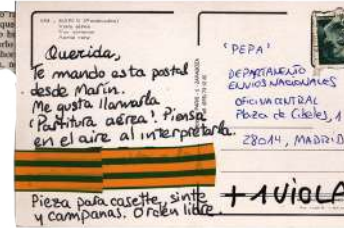 MARIN (Pontevedra)
Vista aérea
Querida,
Te mando asta postal
desde Marín.
Me gusta llamarla
'Partitura aérea'. Piensa
en el aire al interpretarla.
Pieza para casette, sinte
y campanas. Orden libre.
"PEPA"
DEPARTAMENTO
ENVIOS NACIONALES
OFICINA CENTRAL
Plaza de Cibeles, 1
28014, MADRID
+ 1 VIOLA